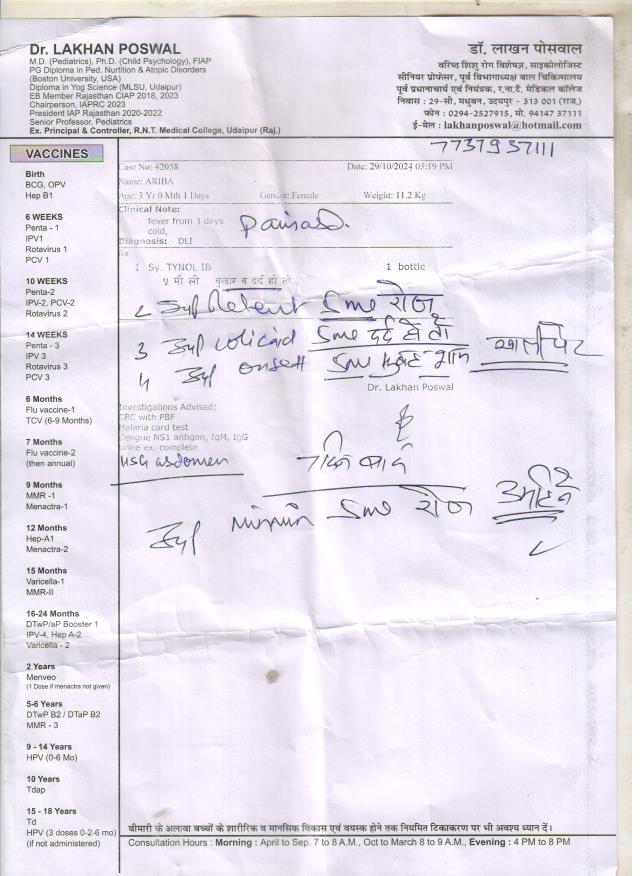 Dr. LAKHAN POSWAL
M.D. (Pediatrics), Ph.D. (Child Psychology), FIAP
PG Diploma in Ped. Nurtition & Atopic Disorders
(Boston University, USA)
Diploma in Yog Science (MLSU, Udaipur)
EB Member Rajasthan CIAP 2018, 2023
Chairperson, IAPRC 2023
President IAP Rajasthan 2020-2022
Senior Professor, Pediatrics
Ex. Principal & Controller, R.N.T. Medical College, Udaipur (Raj.)
डॉ. लाखन पोसवाल
वरिष्ठ शिशु रोग विशेषज्ञ, साइकोलोजिस्ट
सीनियर प्रोफेसर, पूर्व विभागाध्यक्ष बाल चिकित्सालय
पूर्व प्रधानाचार्य एवं नियंत्रक, र.ना.टै. मेडिकल कॉलेज
निवास : 29-सी, मधुबन, उदयपुर - 313 001 (राज.)
फोन : 0294-2527915, मो. 94147 37111
ई-मेल : lakhanposwal@hotmail.com
7737937111
VACCINES
Birth
BCG, OPV
Hep B1
6 WEEKS
Penta - 1
IPV1
Rotavirus 1
PCV 1
10 WEEKS
Penta-2
IPV-2, PCV-2
Rotavirus 2
14 WEEKS
Penta - 3
IPV 3
Rotavirus 3
PCV 3
6 Months
Flu vaccine-1
TCV (6-9 Months)
7 Months
Flu vaccine-2
(then annual)
9 Months
MMR -1
Menactra-1
12 Months
Hep-A1
Menactra-2
15 Months
Varicella-1
MMR-II
16-24 Months
DTwP/aP Booster 1
IPV-4, Hep A-2
Varicella - 2
2 Years
Menveo
(1 Dose if menactra not given)
5-6 Years
DTwP B2 / DTaP B2
MMR - 3
9 - 14 Years
HPV (0-6 Mo)
10 Years
Tdap
15 - 18 Years
Td
HPV (3 doses 0-2-6 mo)
(if not administered)
Case No: 42058 Date: 29/10/2024 05:19 PM
Name: ARIBA
Age: 3 Yr 0 Mth 1 Days Gender: Female Weight: 11.2 Kg
Clinical Note:
fever from 3 days
cold,
Diagnosis: DLI
Rx
1 Sy. TYNOL IB 1 bottle
५ मी ली बुखार व दर्द हो तो
2 Syp 5ml रोज
3 Syp 5ml दर्द हो तो
4 Syp onsett 5ml सुबह शाम खाली पेट
Dr. Lakhan Poswal
Investigations Advised:
CBC with PBF
Malaria card test
Dengue NS1 antigen, IgM, IgG
Urine ex. complete
USG abdomen
Syp 5ml रोज
बीमारी के अलावा बच्चों के शारीरिक व मानसिक विकास एवं वयस्क होने तक नियमित टिकाकरण पर भी अवश्य ध्यान दें।
Consultation Hours : Morning : April to Sep. 7 to 8 A.M., Oct to March 8 to 9 A.M., Evening : 4 PM to 8 PM